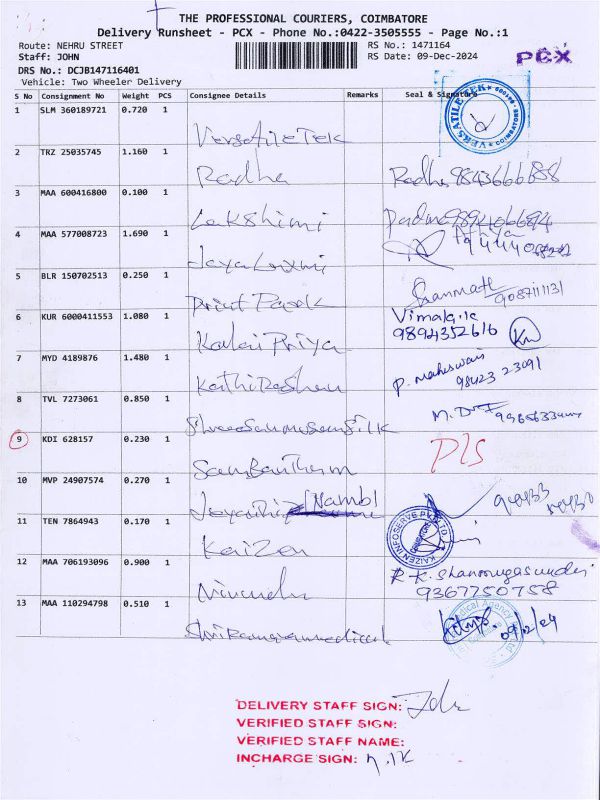 THE PROFESSIONAL COURIERS, COIMBATORE
Delivery Runsheet - PCX - Phone No.:0422-3505555 - Page No.:1
Route: NEHRU STREET RS No.: 1471164
Staff: JOHN RS Date: 09-Dec-2024 PCX
DRS No.: DCJB147116401
Vehicle: Two Wheeler Delivery
S No Consignment No Weight PCS Consignee Details Remarks Seal & Signature
1 SLM 360189721 0.720 1 VERSATILE TEK COIMBATORE
VersatileTek
2 TRZ 25035745 1.160 1
Radha Radha 9843666888
3 MAA 600416800 0.100 1
Lakshimi Padma
4 MAA 577008723 1.690 1
JayaLaxmi
5 BLR 150702513 0.250 1
Print Park 9087111131
6 KUR 6000411553 1.080 1 Vimal
KalaiPriya 9894352616
7 MYD 4189876 1.480 1
P. 98423 23091
8 TVL 7273061 0.850 1
Silk M.
9 KDI 628157 0.230 1
PLS
10 MVP 24907574 0.270 1
Nambi
11 TEN 7864943 0.170 1 KAIZEN INFOSERVE PVT LTD
Kaizen
12 MAA 706193096 0.900 1 R. K. Shanmugasundar
9367750758
13 MAA 110294798 0.510 1 Medical Agency
medical
DELIVERY STAFF SIGN:
VERIFIED STAFF SIGN:
VERIFIED STAFF NAME:
INCHARGE SIGN: